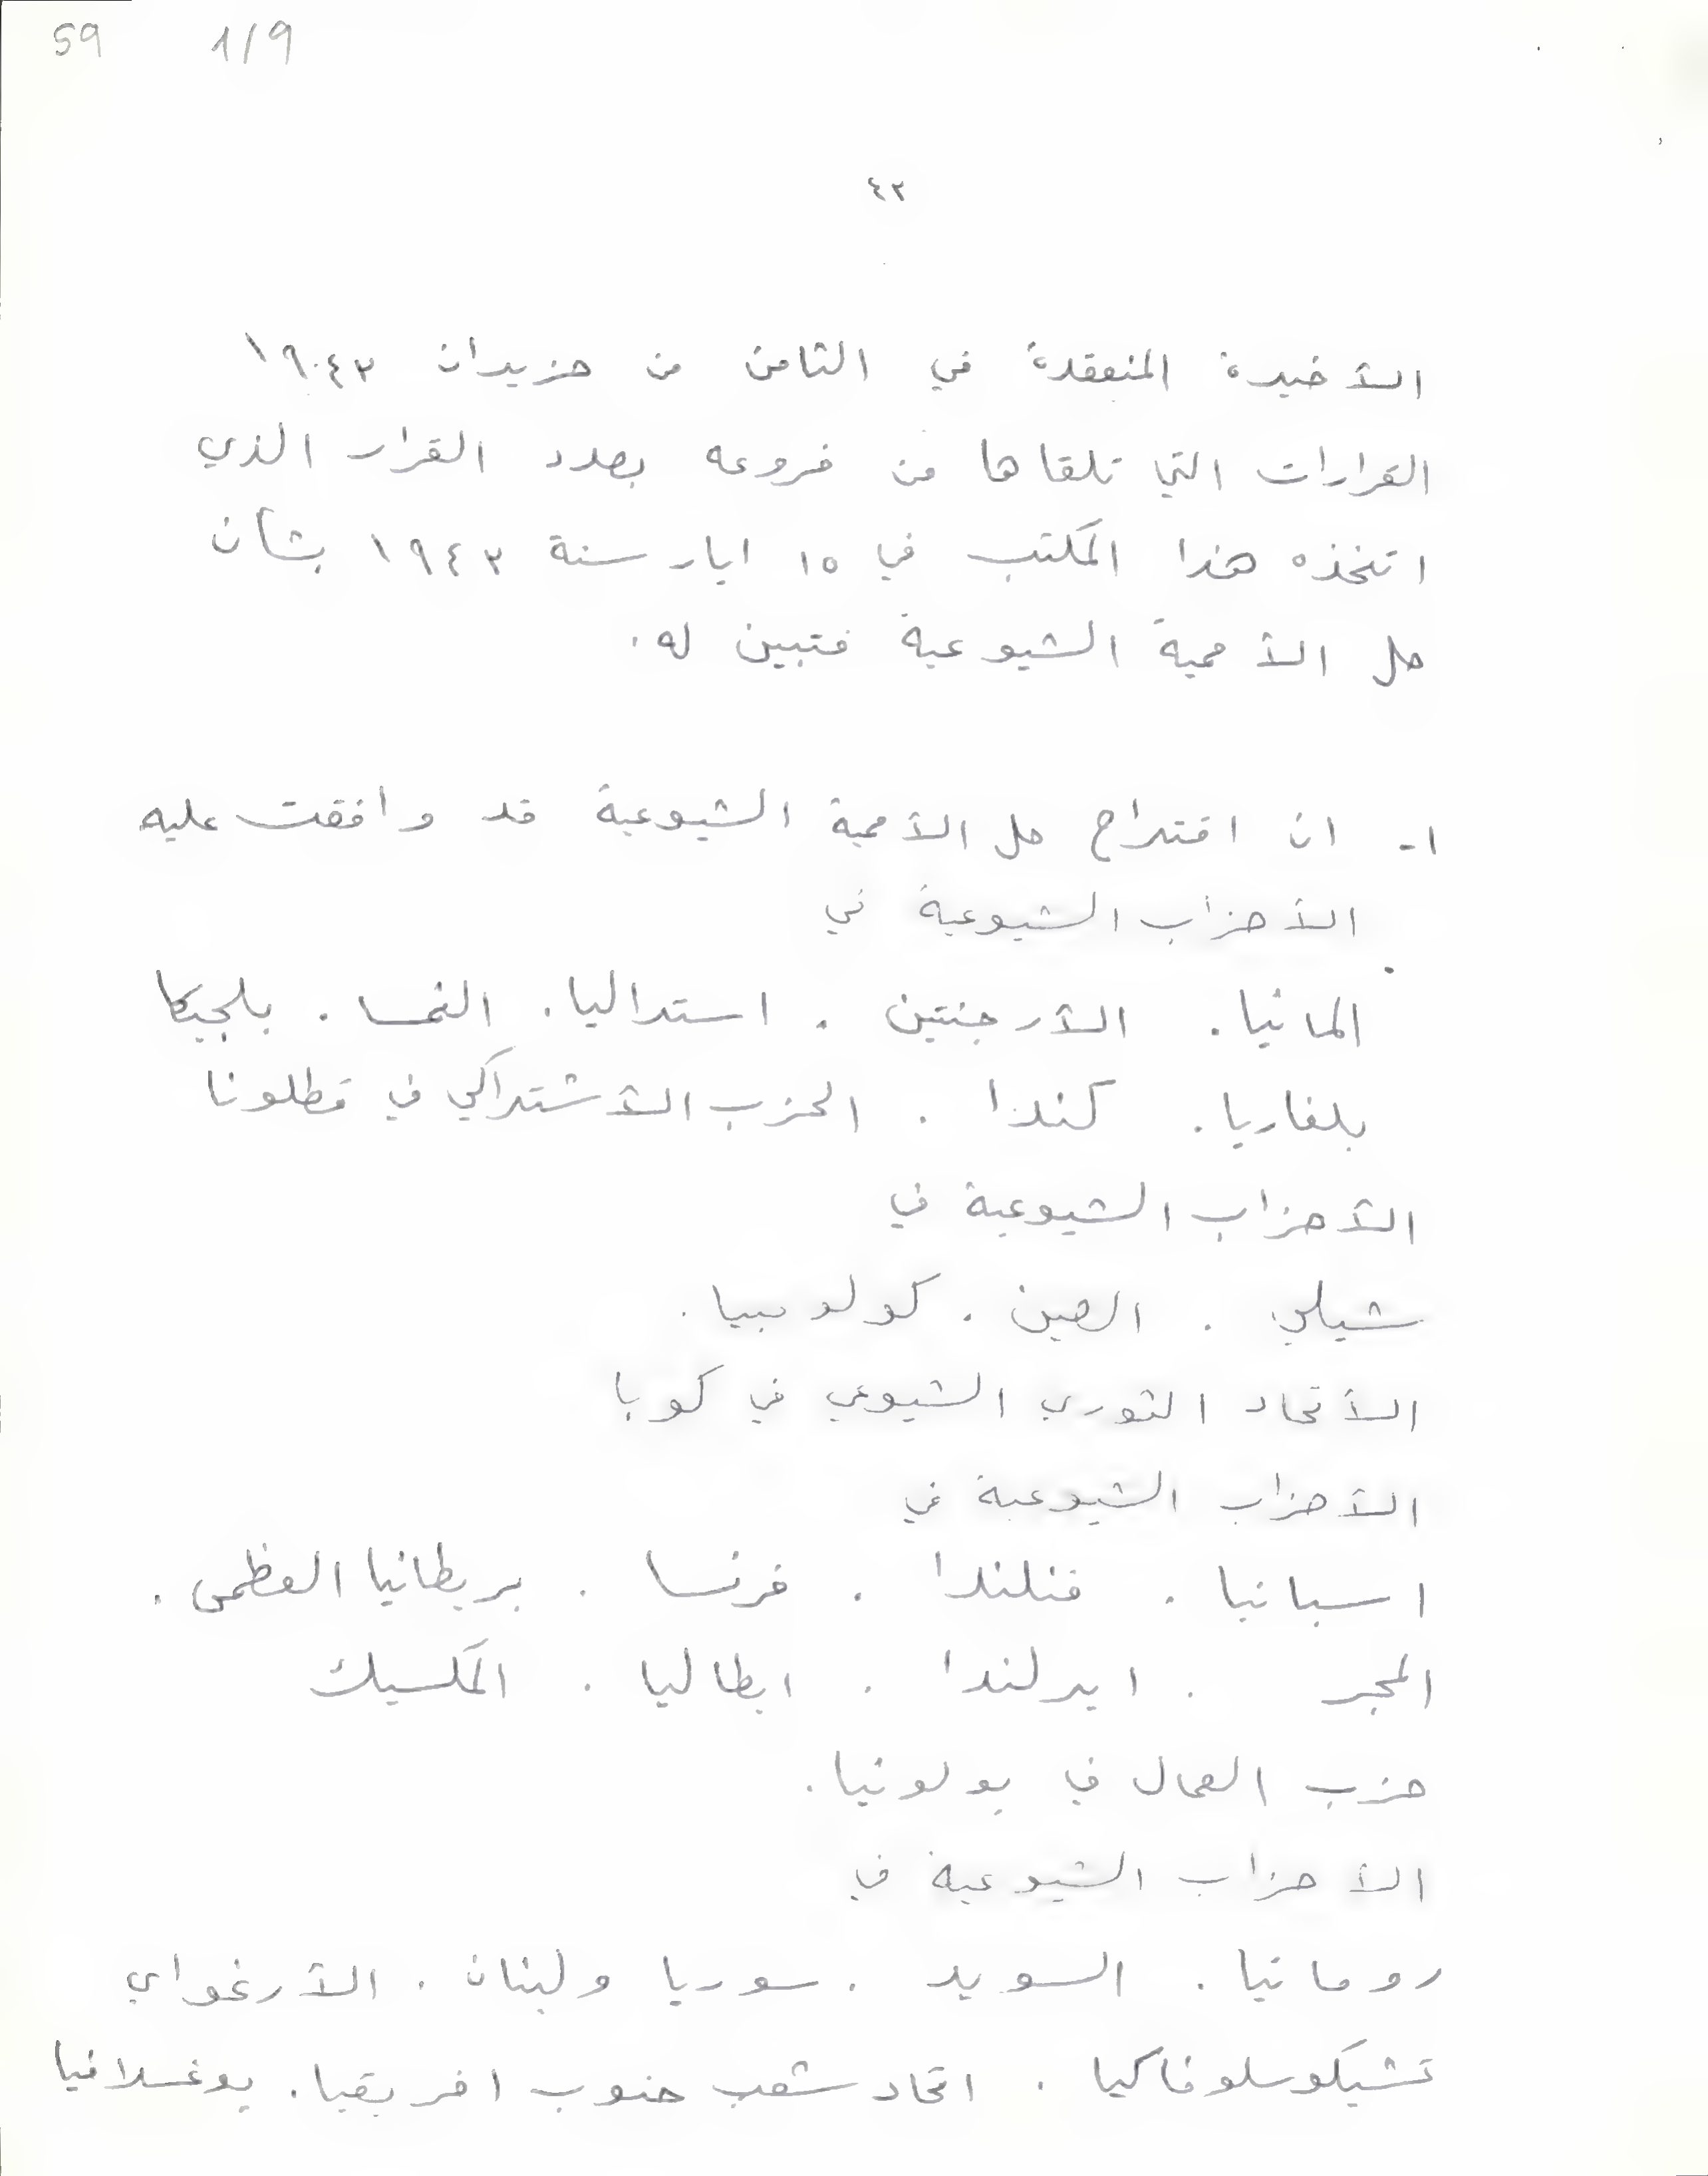 59 1/9
٤٢
الأخيرة المنعقدة في الثامن من حزيران ١٩٤٣
القرارات التي تلقاها من فروعه بصدد القرار الذي
اتخذه هذا المكتب في ١٥ ايار سنة ١٩٤٣ بشأن
حل الأممية الشيوعية فتبين له.
١- ان اقتراح حل الأممية الشيوعية قد وافقت عليه
الأحزاب الشيوعية في
المانيا. الأرجنتين. استراليا. النمسا. بلجيكا
بلغاريا. كندا. الحزب الأشتراكي في قطلونا
الأحزاب الشيوعية في
شيلي. الصين. كولومبيا.
الأتحاد الثوري الشيوعي في كوبا
الأحزاب الشيوعية في
اسبانيا. فنلندا. فرنسا. بريطانيا العظمى.
المجر. ايرلندا. ايطاليا. المكسيك
حزب العمال في بولونيا.
الأحزاب الشيوعية في
رومانيا. السويد. سوريا ولبنان. الأرغواي
تشيكوسلوفاكيا. اتحاد شعب جنوب افريقيا. يوغسلافيا